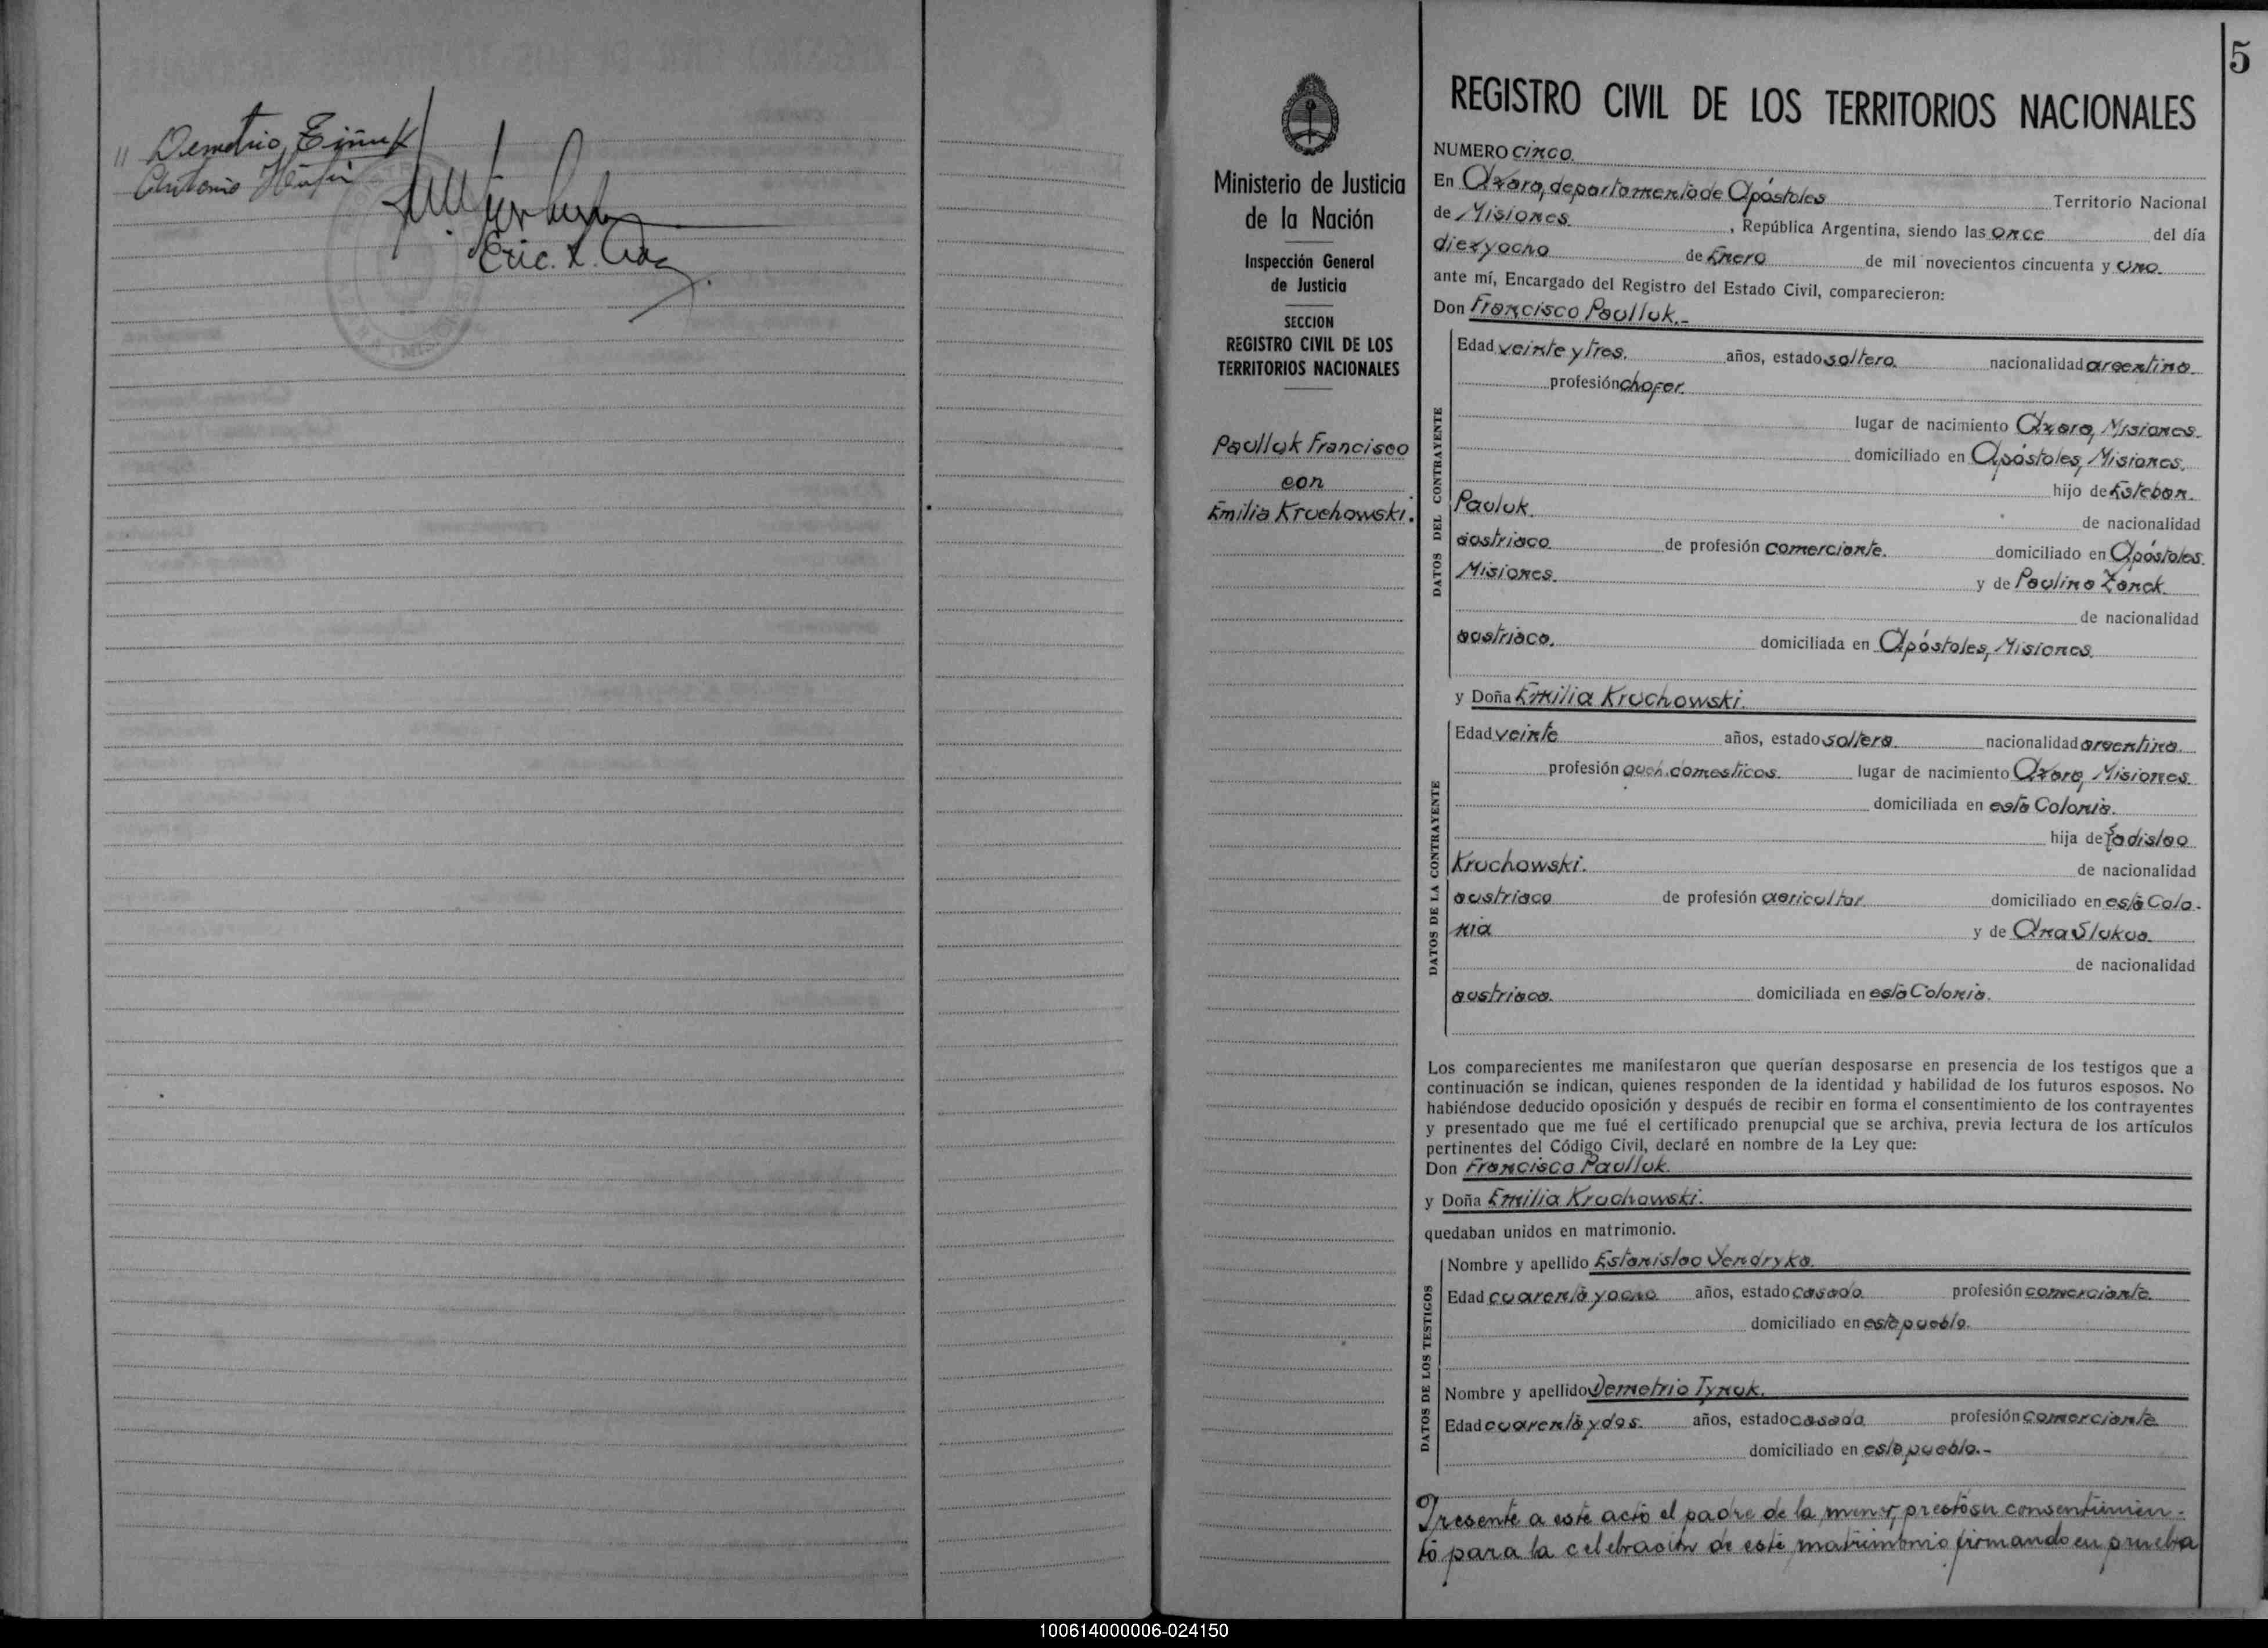 " Demetrio
Antonio
Eric.
5
Ministerio de Justicia
de la Nación
Inspección General
de Justicia
SECCION
REGISTRO CIVIL DE LOS
TERRITORIOS NACIONALES
Paulluk Francisco
con
Emilia Kruchowski.
REGISTRO CIVIL DE LOS TERRITORIOS NACIONALES
NUMERO cinco.
En Azara, departamento de Apóstoles Territorio Nacional
de Misiones. , República Argentina, siendo las once del día
diez y ocho de Enero de mil novecientos cincuenta y uno.
ante mí, Encargado del Registro del Estado Civil, comparecieron:
Don Francisco Paulluk.-
DATOS DEL CONTRAYENTE
Edad veinte y tres. años, estado soltero. nacionalidad argentina.
profesión chofer.
lugar de nacimiento Azara, Misiones.
domiciliado en Apóstoles, Misiones.
hijo de Esteban.
Pauluk. de nacionalidad
austriaco de profesión comerciante. domiciliado en Apóstoles.
Misiones. y de Paulina Zanck.
de nacionalidad
austriaca. domiciliada en Apóstoles, Misiones.
y Doña Emilia Kruchowski.
DATOS DE LA CONTRAYENTE
Edad veinte años, estado soltera. nacionalidad argentina.
profesión queh. domesticos. lugar de nacimiento Azara, Misiones.
domiciliada en esta Colonia.
hija de Ladislao
Kruchowski. de nacionalidad
austriaco de profesión agricultor domiciliado en esta Colo-
nia y de Ana Slukua.
de nacionalidad
austriaca. domiciliada en esta Colonia.
Los comparecientes me manifestaron que querían desposarse en presencia de los testigos que a
continuación se indican, quienes responden de la identidad y habilidad de los futuros esposos. No
habiéndose deducido oposición y después de recibir en forma el consentimiento de los contrayentes
y presentado que me fué el certificado prenupcial que se archiva, previa lectura de los artículos
pertinentes del Código Civil, declaré en nombre de la Ley que:
Don Francisco Paulluk.
y Doña Emilia Kruchowski.
quedaban unidos en matrimonio.
DATOS DE LOS TESTIGOS
Nombre y apellido Estanislao Yendryka.
Edad cuarenta y ocho años, estado casado profesión comerciante.
domiciliado en este pueblo.
Nombre y apellido Demetrio Tynuk.
Edad cuarenta y dos. años, estado casado profesión comerciante
domiciliado en este pueblo.-
Presente a este acto el padre de la menor, prestó su consentimien-
to para la celebración de este matrimonio firmando en prueba
100614000006-024150